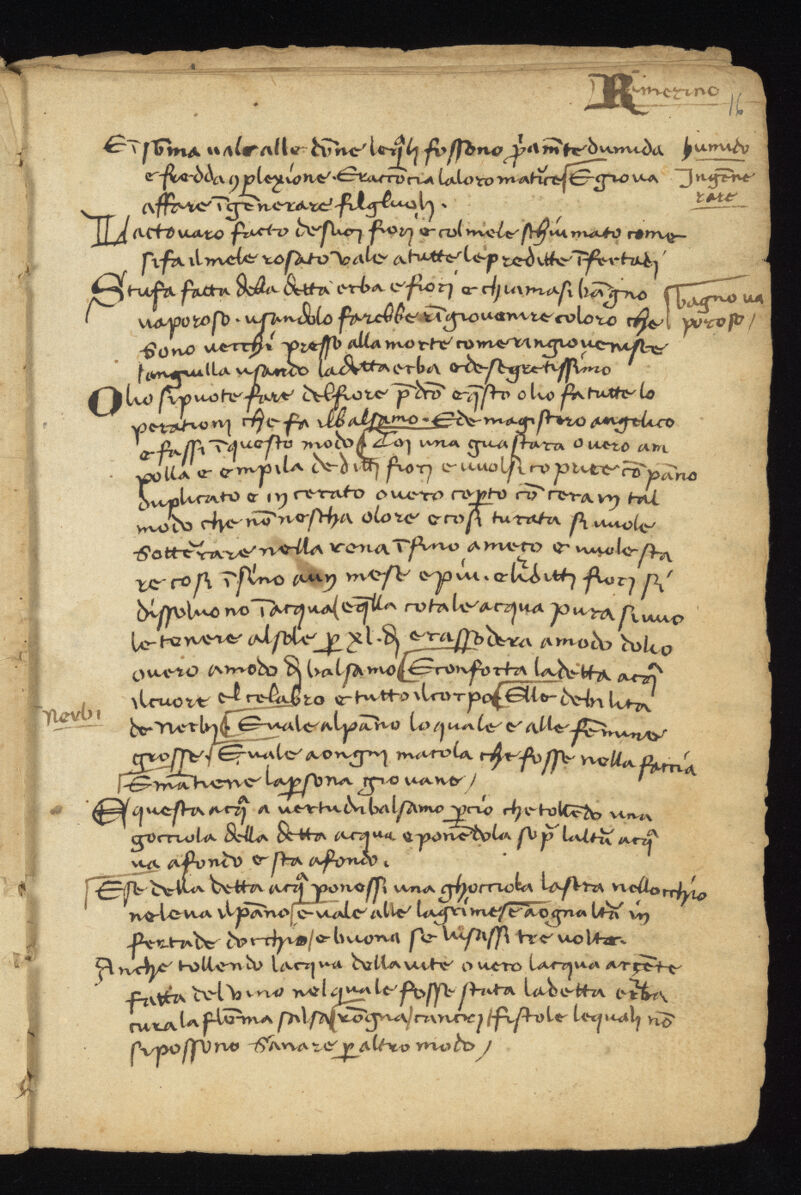 Rimerino
16
E ĩ sõma vale alle dõne leq̃li fossono p̃amẽte dumida
humido
e fredda ꝯplexione · E racconcia la loro matrice E giova
Ingẽne
rare
affare ĩgenerare figluoli ·
Lactovaro facto de suoi fiori e col mele schiumato come
si fa il mele rosato vale a tutte le preditte ĩfertadi
Stufa fatta della detta erba e fiori e chiamasi bãgno
bagno va
poroso /
vaporoso · usandolo farebbe rĩgiovenire coloro che
sono vecchi presso alla morte come ringiovenisce
languilla usando la detta erba ed e segretissimo
Olio si puote fare del fiore p̃dcõ e q̃sto olio fa tutte lo
perationi che fa il balsamo · Ed e magistero angelico
e fassi ĩ questo modo Toi una guastara overo am
polla e empila de ditti fiori e vuolsi coprire cõ pãno
duplicato e incerato overo copto cõ cera in tal
modo che nõ nescha olore e così turata si vuole
sotterrare nella rena ĩfino a meço e vuole sta
re così ĩfino a un mese e piu · e li ditti fiori si
dissolvono ĩ acqua e q̃lla cotale acqua pura si vuo
le tenere al sole p xl · dì e rassodera a modo dolio
overo a modo di balsamo E conforta la detta acq̃
il cuore el celabro e tutto il corpo E lle debilita
Nerbi
de nerbi · E vale al pãno lo quale e alle femine
grosse · E vale a ongni macola che fosse nella faccia
E mãtiene la psona giovane /
E questa acq̃ a vertu di balsamo pcio che tollẽdo una
gocciola della detta acqua e ponẽdola sop̃ laltra acq̃
va a fondo e sta a fondo ·
E se della detta acq̃ ponessi una ghocciola la sera nellocchio
ne leva il pãno e vale alle lagrime e a ogna altra in
fertade docchio / e buona se lusassi tre volte ·
Anche tollendo lacqua della vite overo lacqua argẽte
fatta del vino nel quale fosse stata la detta erba
cura la flẽma salsa rõgna / cancri / fistole le quali nõ
si possono sanare p altro modo /